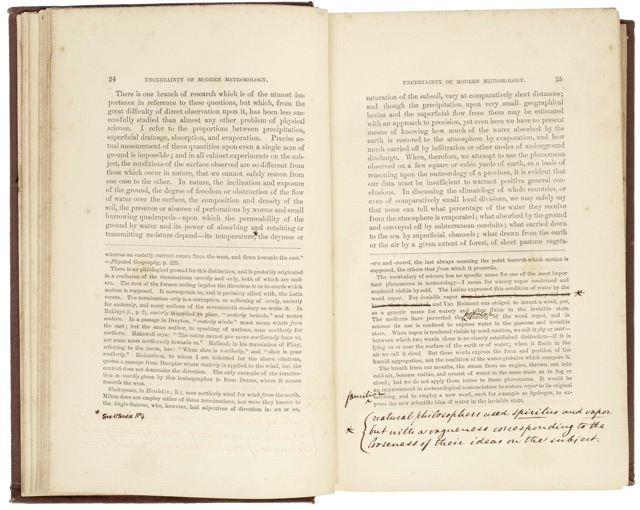 24 UNCERTAINTY OF MODERN METEOROLOGY.
There is one branch of research which is of the utmost im-
portance in reference to these questions, but which, from the
great difficulty of direct observation upon it, has been less suc-
cessfully studied than almost any other problem of physical
science. I refer to the proportions between precipitation,
superficial drainage, absorption, and evaporation. Precise ac-
tual measurement of these quantities upon even a single acre of
ground is impossible; and in all cabinet experiments on the sub-
ject, the conditions of the surface observed are so different from
those which occur in nature, that we cannot safely reason from
one case to the other. In nature, the inclination and exposure
of the ground, the degree of freedom or obstruction of the flow
of water over the surface, the composition and density of the
soil, the presence or absence of perforations by worms and small
burrowing quadrupeds—upon which the permeability of the
ground by water and its power of absorbing and retaining or
transmitting moisture depend—its temperature, the dryness or
whereas an easterly current comes from the west, and flows towards the east."
—Physical Geography, p. 229.
There is no philological ground for this distinction, and it probably originated
in a confusion of the terminations -wardly and -erly, both of which are mod-
ern. The root of the former ending implies the direction to or to-wards which
motion is supposed. It corresponds to, and is probably allied with, the Latin
versus. The termination -erly is a corruption or softening of -ernly, easterly
for easternly, and many authors of the seventeenth century so write it. In
Hakluyt (i., p. 2), easterly is applied to place, "easterly bounds," and means
eastern. In a passage in Drayton, "easterly winds" must mean winds from
the east; but the same author, in speaking of nations, uses northerly for
northern. Hakewell says: "The sonne cannot goe more southernely from vs,
nor come more northernely towards vs." Holland, in his translation of Pliny,
referring to the moon, has: "When shee is northerly," and "shee is gone
southerly." Richardson, to whom I am indebted for the above citations,
quotes a passage from Dampier where westerly is applied to the wind, but the
context does not determine the direction. The only example of the termina-
tion in -wardly given by this lexicographer is from Donne, where it means
towards the west.
Shakespeare, in Hamlet (v., ii.), uses northerly wind for wind from the north.
Milton does not employ either of these terminations, nor were they known to
the Anglo-Saxons, who, however, had adjectives of direction in -an or -en,
* See Appendix No 4
UNCERTAINTY OF MODERN METEOROLOGY. 25
saturation of the subsoil, vary at comparatively short distances;
and though the precipitation upon very small geographical
basins and the superficial flow from them may be estimated
with an approach to precision, yet even here we have no present
means of knowing how much of the water absorbed by the
earth is restored to the atmosphere by evaporation, and how
much carried off by infiltration or other modes of underground
discharge. When, therefore, we attempt to use the phenomena
observed on a few square or cubic yards of earth, as a basis of
reasoning upon the meteorology of a province, it is evident that
our data must be insufficient to warrant positive general con-
clusions. In discussing the climatology of whole countries, or
even of comparatively small local divisions, we may safely say
that none can tell what percentage of the water they receive
from the atmosphere is evaporated; what absorbed by the ground
and conveyed off by subterranean conduits; what carried down
to the sea by superficial channels; what drawn from the earth
or the air by a given extent of forest, of short pasture vegeta-
-ern and -weard, the last always meaning the point towards which motion is
supposed, the others that from which it proceeds.
The vocabulary of science has no specific name for one of the most impor-
tant phenomena in meteorology—I mean for watery vapor condensed and
rendered visible by cold. The Latins expressed this condition of water by the
word vapor. For invisible vapor *
and Van Helmont was obliged to invent a word, gas,
as a generic name for watery and other fluids in the invisible state.
The moderns have perverted the meaning of the word vapor, and in
science its use is confined to express water in the gaseous and invisible
state. When vapor is rendered visible by condensation, we call it fog or mist—
between which two words there is no clearly established distinction—if it is
lying on or near the surface of the earth or of water; when it floats in the
air we call it cloud. But these words express the form and position of the
humid aggregation, not the condition of the water globules which compose it.
The breath from our mouths, the steam from an engine, thrown out into
cold air, become visible, and consist of water in the same state as in fog or
cloud; but we do not apply those terms to these phenomena. It would be
an improvement in meteorological nomenclature to restore vapor to its original
meaning, and to employ a new word, such for example as hydrogas, to ex-
press the new scientific idea of water in the invisible state.
* natural philosophers used spiritus and vapor
but with a vagueness corresponding to the
looseness of their ideas on the subject.